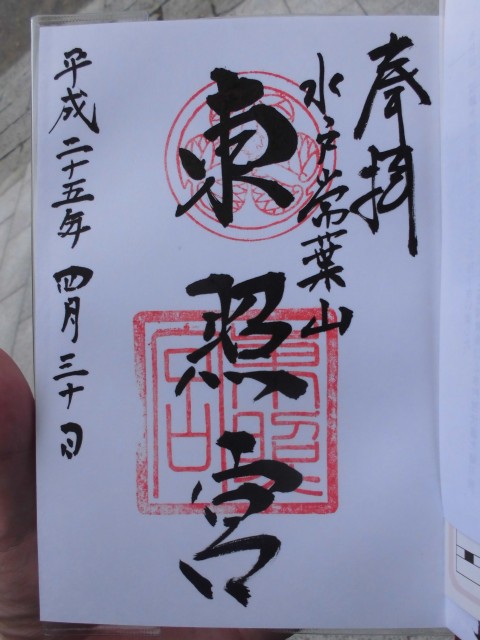 奉拝
水戸常葉山
東照宮
平成二十五年四月三十日